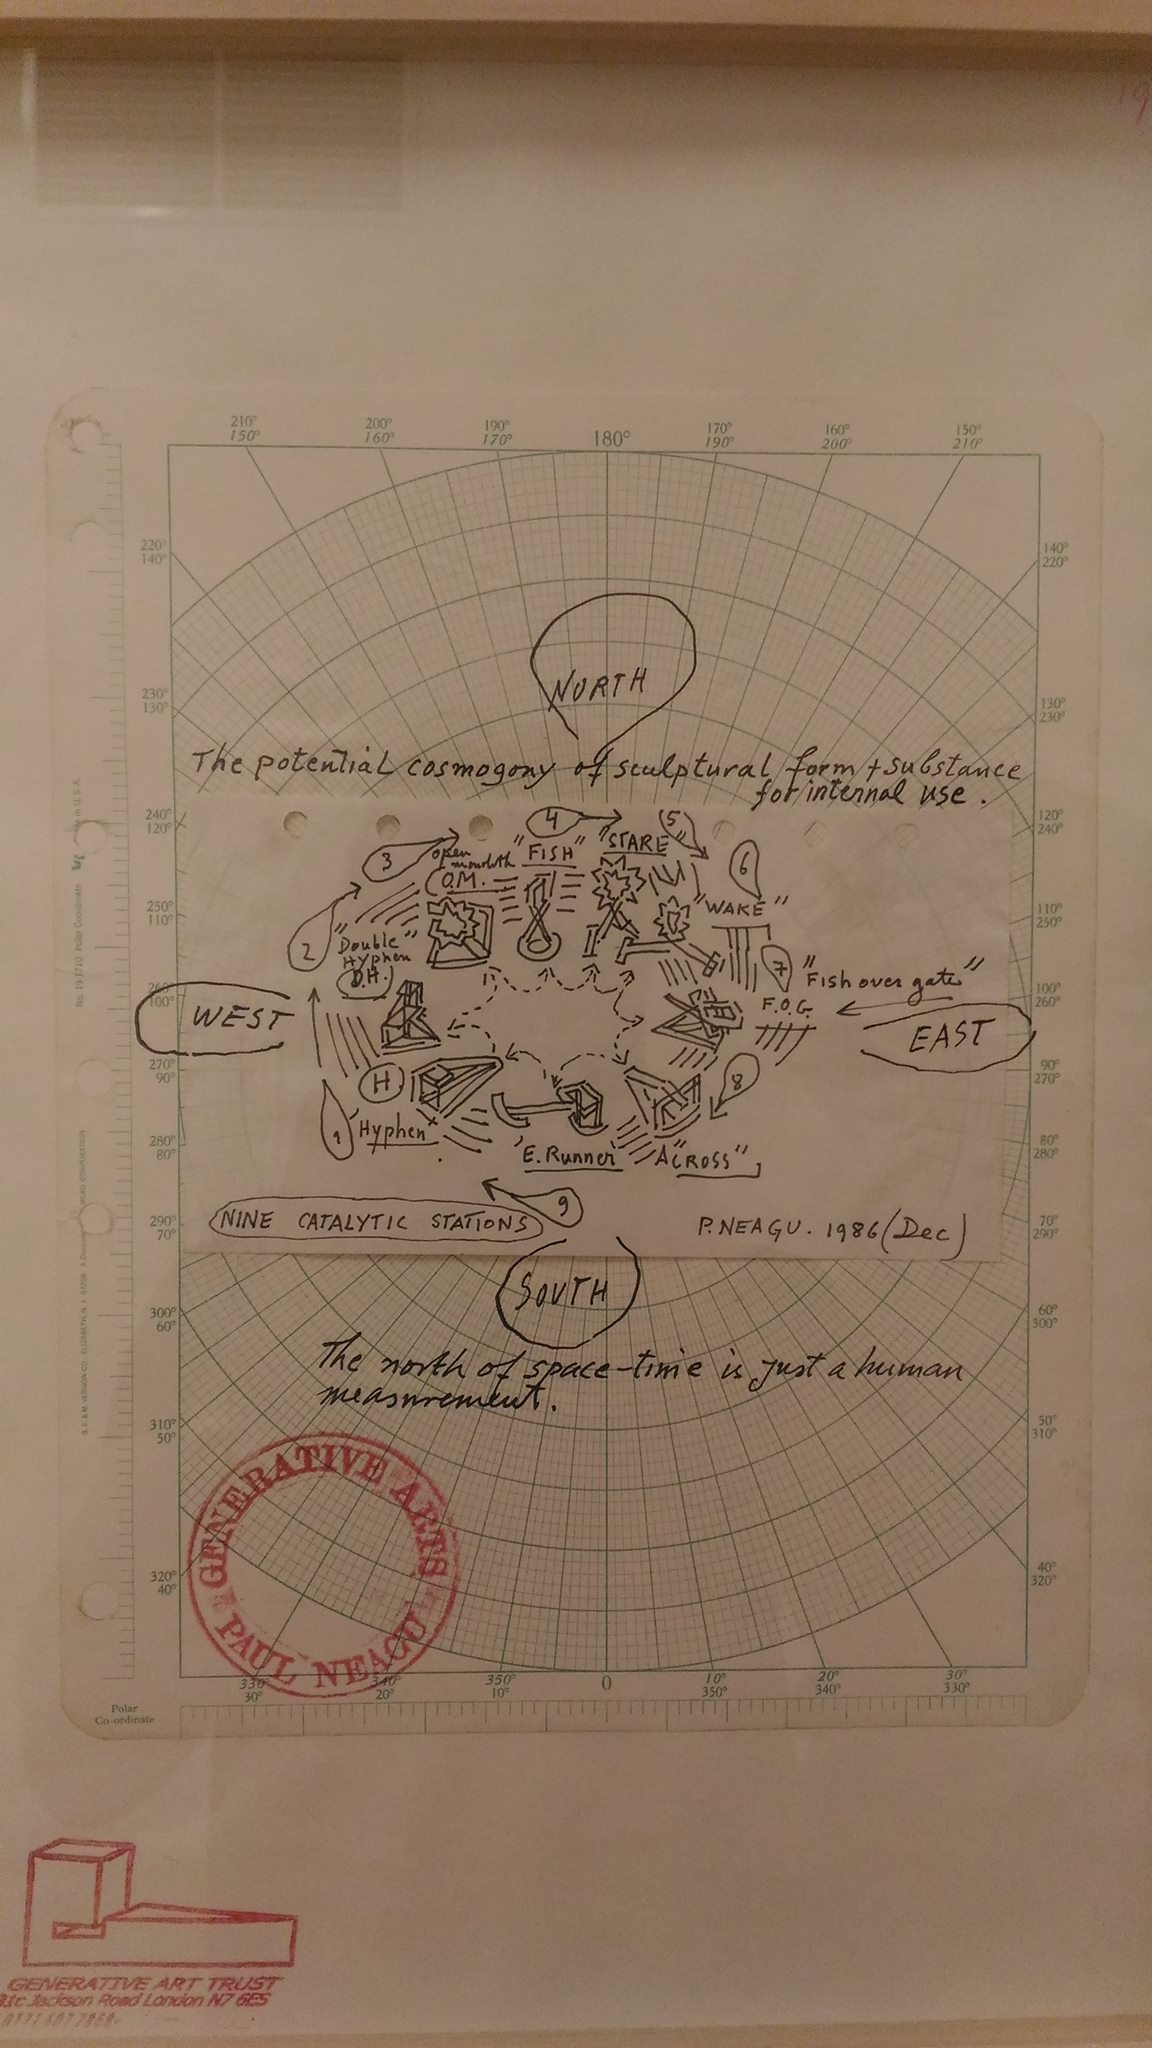 19
210° 200° 190° 180° 170° 160° 150°
150° 160° 170° 190° 200° 210°
220°
140°
140°
220°
NORTH
230°
130°
130°
230°
The potential cosmogony of sculptural form + substance
for internal use.
240°
120°
120°
240°
4 5
3 open "FISH" "STARE"
monolith
O.M.
6
"WAKE"
250°
110°
110°
250°
2 "Double"
Hyphen
D.H.
7 "Fish over gate"
F.O.G.
260°
100°
100°
260°
WEST
EAST
270°
90°
90°
270°
H
8
1 "Hyphen"
'E. Runner' "ACROSS"
280°
80°
80°
280°
9
NINE CATALYTIC STATIONS
P. NEAGU. 1986 (Dec)
290°
70°
70°
290°
SOUTH
300°
60°
60°
300°
The north of space-time is just a human
measurement.
310°
50°
50°
310°
GENERATIVE ARTS
PAUL NEAGU
320°
40°
40°
320°
330° 340° 350° 0 10° 20° 30°
30° 20° 10° 350° 340° 330°
Polar
Co-ordinate
GENERATIVE ART TRUST
Jackson Road London N7 6ES